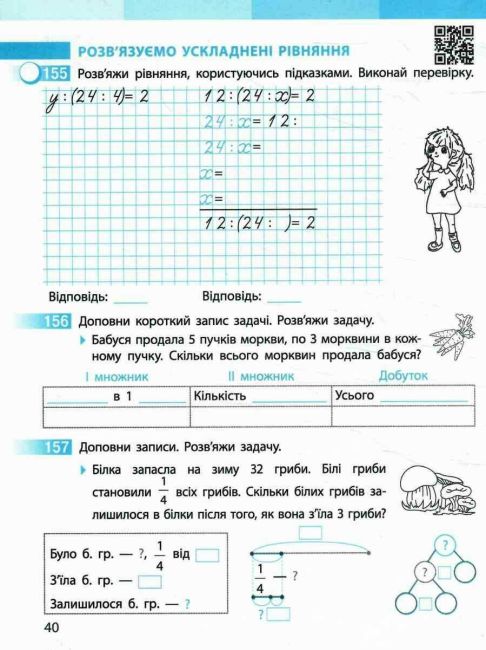 РОЗВ'ЯЗУЄМО УСКЛАДНЕНІ РІВНЯННЯ
155 Розв'яжи рівняння, користуючись підказками. Виконай перевірку.
y : (24 : 4) = 2
12 : (24 : x) = 2
24 : x = 12 :
24 : x =
x =
x =
12 : (24 : ) = 2
Відповідь: ______ Відповідь: ______
156 Доповни короткий запис задачі. Розв'яжи задачу.
Бабуся продала 5 пучків моркви, по 3 морквини в кож-
ному пучку. Скільки всього морквин продала бабуся?
І множник ІІ множник Добуток
______ в 1 ______ Кількість ______ Усього ______
157 Доповни записи. Розв'яжи задачу.
Білка запасла на зиму 32 гриби. Білі гриби
становили 1/4 всіх грибів. Скільки білих грибів за-
лишилося в білки після того, як вона з'їла 3 гриби?
Було б. гр. — ?, 1/4 від
З'їла б. гр. —
Залишилося б. гр. — ?
1/4 — ?
?
?
?
40